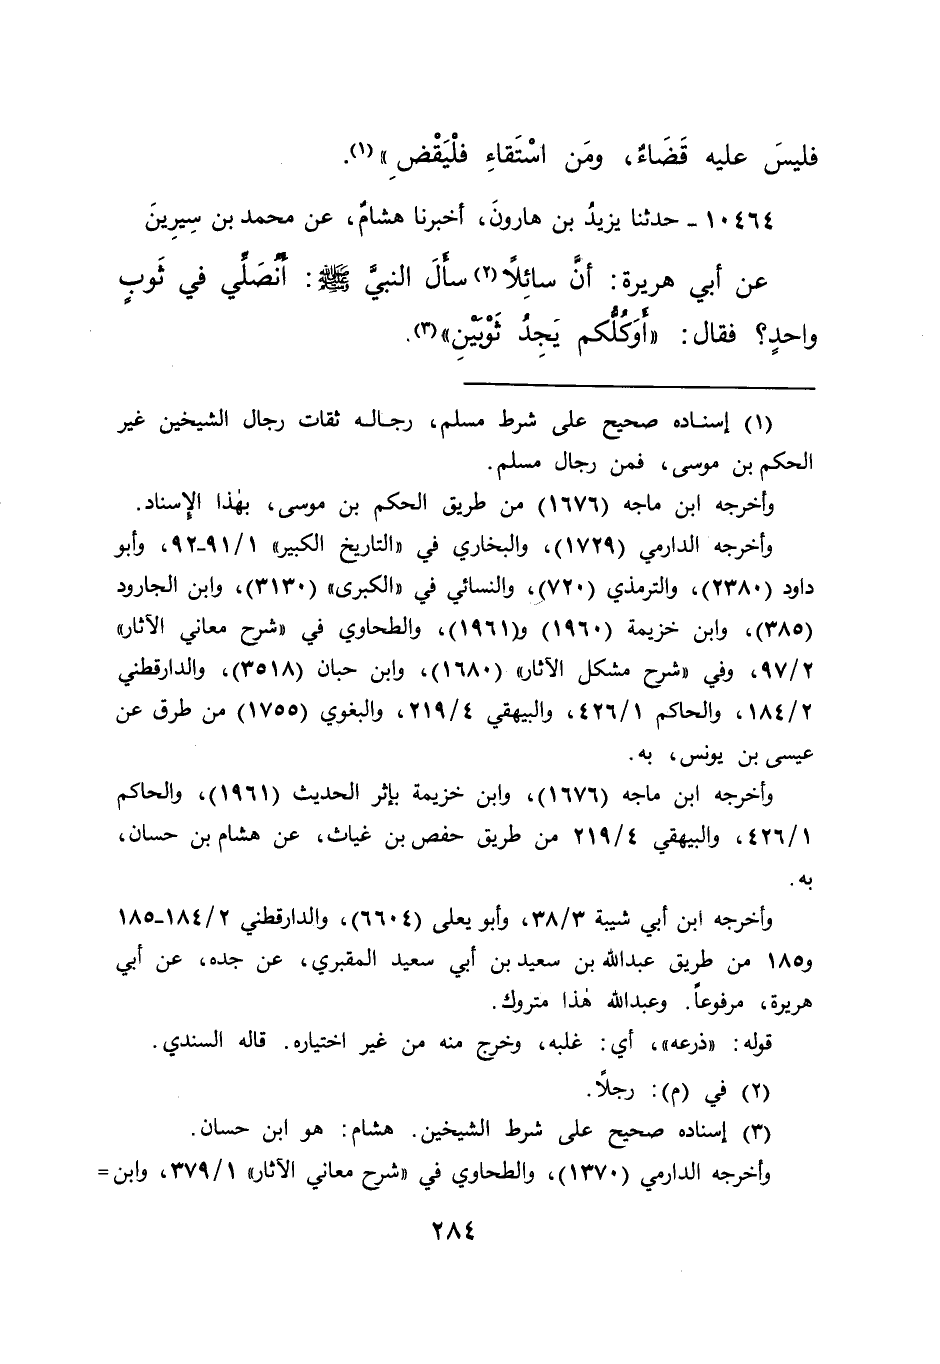 فليسَ عليه قَضَاءٌ، ومَن اسْتَقاءِ فلْيَقْضِ»(١).
١٠٤٦٤ - حدثنا يزيدُ بن هارونَ، أخبرنا هشامٌ، عن محمد بن سِيرِينَ
عن أبي هريرة: أنَّ سائِلًا(٢) سأَلَ النبيَّ ﷺ: أَنُصَلِّي في ثَوبٍ
واحدٍ؟ فقال: «أَوَكُلُّكم يَجِدُ ثَوْبَيْنِ»(٣).
(١) إسناده صحيح على شرط مسلم، رجاله ثقات رجال الشيخين غير
الحكم بن موسى، فمن رجال مسلم.
وأخرجه ابن ماجه (١٦٧٦) من طريق الحكم بن موسى، بهٰذا الإسناد.
وأخرجه الدارمي (١٧٢٩)، والبخاري في «التاريخ الكبير» ٩١/١-٩٢، وأبو
داود (٢٣٨٠)، والترمذي (٧٢٠)، والنسائي في «الكبرى» (٣١٣٠)، وابن الجارود
(٣٨٥)، وابن خزيمة (١٩٦٠) و(١٩٦١)، والطحاوي في «شرح معاني الآثار»
٩٧/٢، وفي «شرح مشكل الآثار» (١٦٨٠)، وابن حبان (٣٥١٨)، والدارقطني
١٨٤/٢، والحاكم ٤٢٦/١، والبيهقي ٢١٩/٤، والبغوي (١٧٥٥) من طرق عن
عيسى بن يونس، به.
وأخرجه ابن ماجه (١٦٧٦)، وابن خزيمة بإثر الحديث (١٩٦١)، والحاكم
٤٢٦/١، والبيهقي ٢١٩/٤ من طريق حفص بن غياث، عن هشام بن حسان،
به.
وأخرجه ابن أبي شيبة ٣٨/٣، وأبو يعلى (٦٦٠٤)، والدارقطني ١٨٤/٢-١٨٥
و١٨٥ من طريق عبدالله بن سعيد بن أبي سعيد المقبري، عن جده، عن أبي
هريرة، مرفوعاً. وعبدالله هٰذا متروك.
قوله: «ذرعه»، أي: غلبه، وخرج منه من غير اختياره. قاله السندي.
(٢) في (م): رجلاً.
(٣) إسناده صحيح على شرط الشيخين. هشام: هو ابن حسان.
وأخرجه الدارمي (١٣٧٠)، والطحاوي في «شرح معاني الآثار» ٣٧٩/١، وابن=
٢٨٤